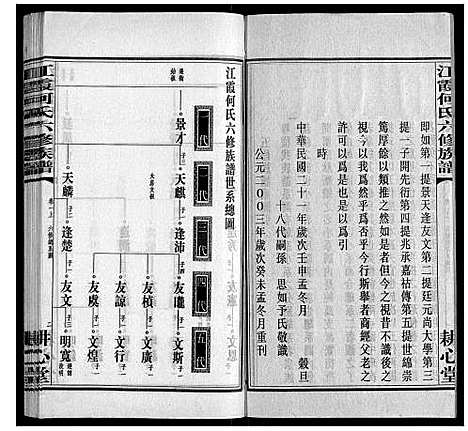 江霞何氏六修族譜
耕心堂
即如第一提景天逢友文第二提廷元尚大學第三
提二子開先衍第四提兆承嘉祜傳第五提世綿崇
篤厚餘以類推之然如是者但今之視昔不識後之
視今以我為然乎為否乎今行斯舉者商經父老之
許可以爲是也是以爲引
時
中華民國二十一年歲次壬申孟冬月 穀旦
十八代嗣孫 思如予氏敬識
公元二00三年歲次癸未孟冬月重刊
江霞何氏六修族譜世系總圖
一代
二代
三代
四代
五代
遷衡
始祖
景才
子二
天麒
子一
逢沛
子四
友瓏
子一
文斯
友楨
子一
文廣
友諒
子一
文行
友虞
子一
文煌
天麟
子一
逢楚
子一
友文
子三
明寬
江霞何氏六修族譜
耕心堂